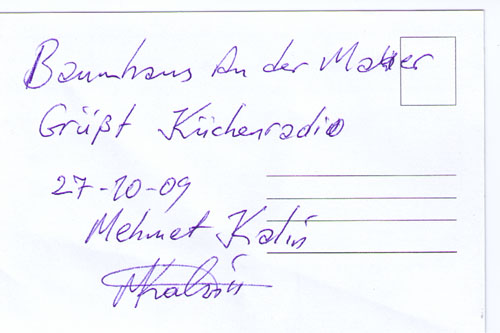 Baumhaus An der Mauer
Grüßt Küchenradio
27-10-09
Mehmet Kalin
MKalin